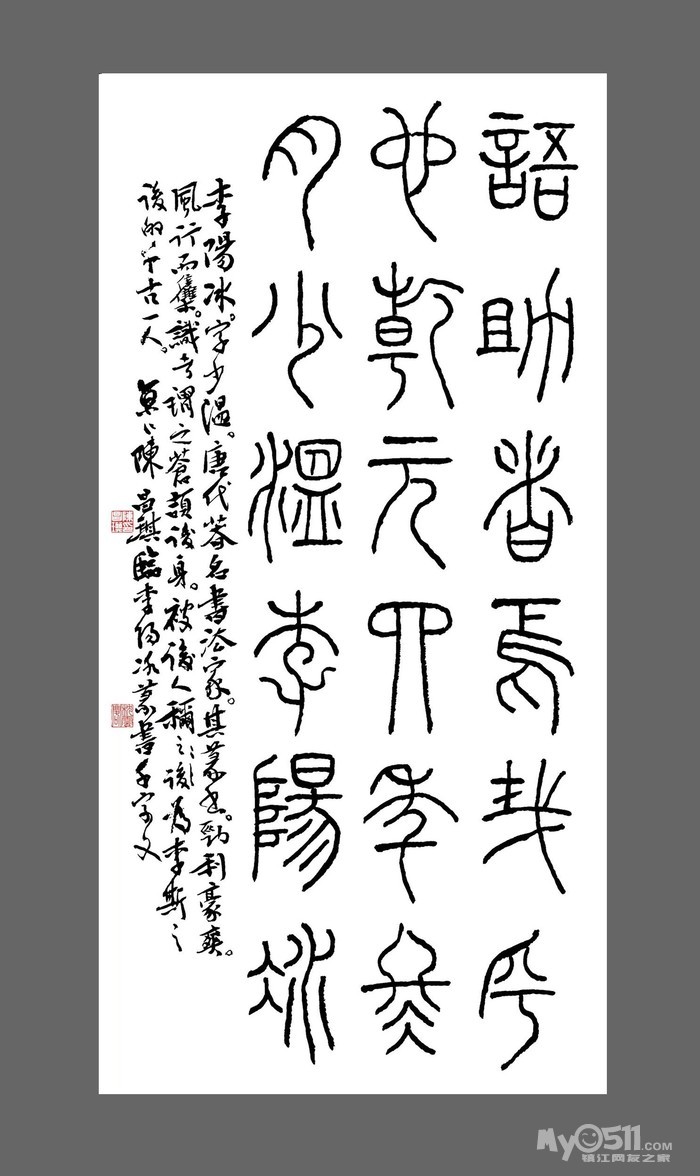 語助者焉哉乎
也乾元四年叄
月少溫李陽冰
李陽冰。字少溫。唐代著名書法家。其篆書。勁利豪爽。
風行而集。識者謂之蒼頡後身。被後人稱之為李斯之
後的千古一人。陳昌臨李陽冰篆書千字文
My0511.com
镇江网友之家